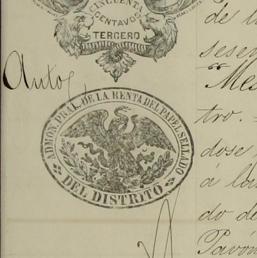 CINCUENTA
CENTAVOS
TERCERO
de l
sese
Mes
Auto
tro.
ADMON. PRAL. DE LA RENTA DEL PAPEL SELLADO
DEL DISTRITO
dose
á la
do de
Pavón